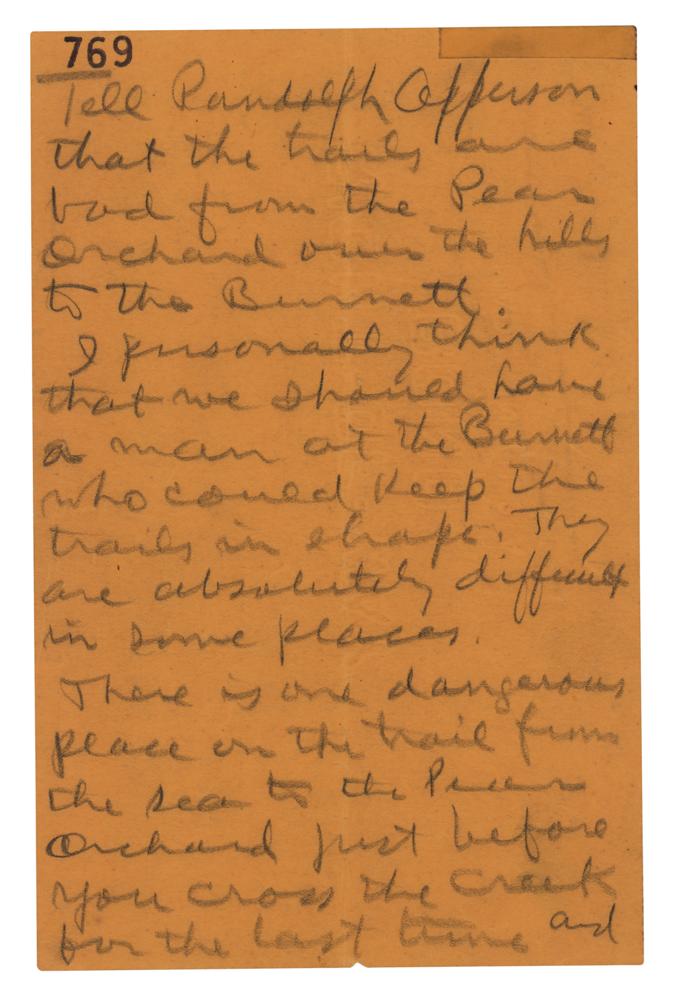 769
Tell Randolph Apperson
that the trails are
bad from the Pear
Orchard over the hills
to the Burnett.
I personally think
that we should have
a man at the Burnett
who could keep the
trails in shape. They
are absolutely difficult
in some places.
There is one dangerous
place on the trail from
the sea to the Pear
Orchard just before
you cross the Creek
for the last time and